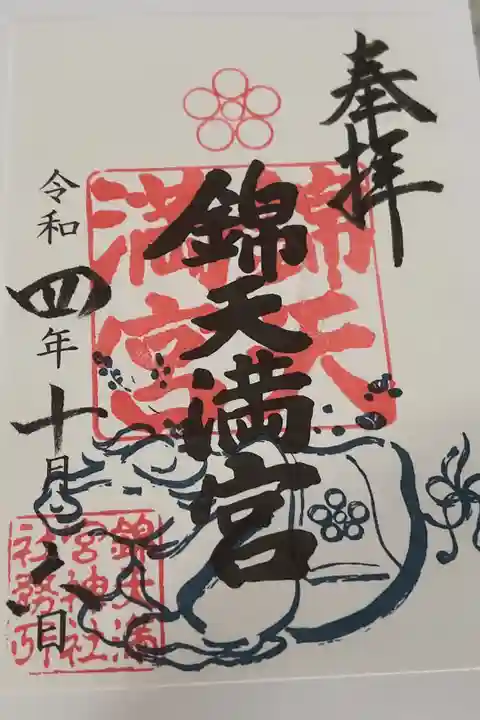 奉拝
錦天満宮
錦天満宮
令和四年十月六日
錦天満宮神社社務所